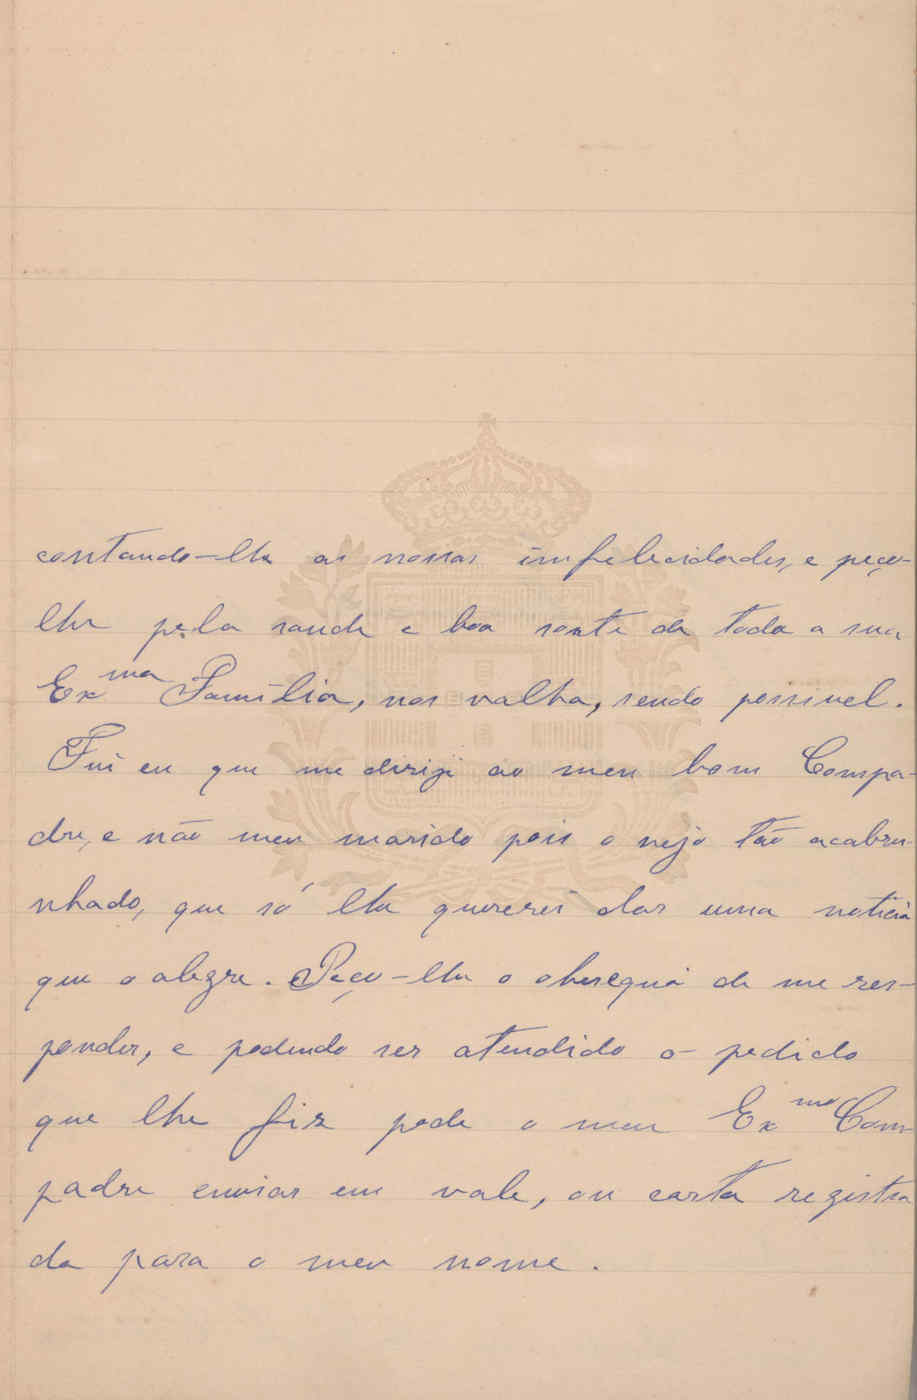 contando-lhe as nossas infelecidades, e peço-
lhe pela saude e boa sorte de toda a sua
Ex.ma Família, nos valha, sendo possivel.
Fui eu que me dirigi ao meu bom Compa-
dre, e não meu marido pois o vejo tão acabru-
nhado, que só lhe quererei dar uma noticia
que o alegre. Peço-lhe o obsequio de me res-
ponder, e podendo ser atendido o pedido
que lhe fiz pode o meu Ex.mo Com-
padre enviar em vale, ou carta registra
da para o meu nome.